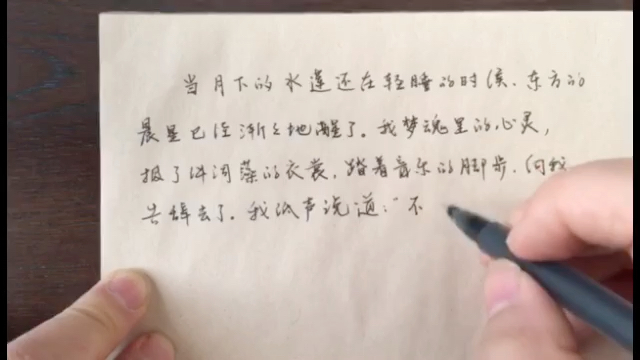 当月下的水莲还在轻睡的时候,东方的
晨星已经渐渐地醒了。我梦魂里的心灵,
披了件词藻的衣裳,踏着音乐的脚步,向我
告辞去了。我低声说道:“不